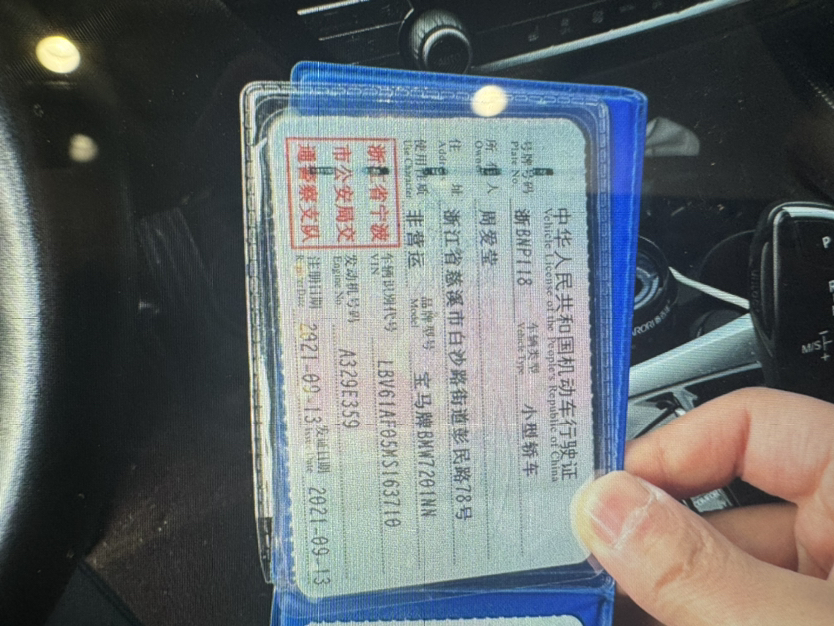 中华人民共和国机动车行驶证
Vehicle License of the People's Republic of China
号牌号码 浙BNP118 车辆类型 小型轿车
Plate No. Vehicle Type
所有人 周爱莹
Owner
住址 浙江省慈溪市白沙路街道彭民路78号
Address
使用性质 非营运 品牌型号 宝马牌BMW7201NN
Use Character Model
浙江省宁波
市公安局交
通警察支队
车辆识别代号 LBV61AF05MS163710
VIN
发动机号码 A329E359
Engine No.
注册日期 2021-09-13 发证日期 2021-09-13
P
R
M/S